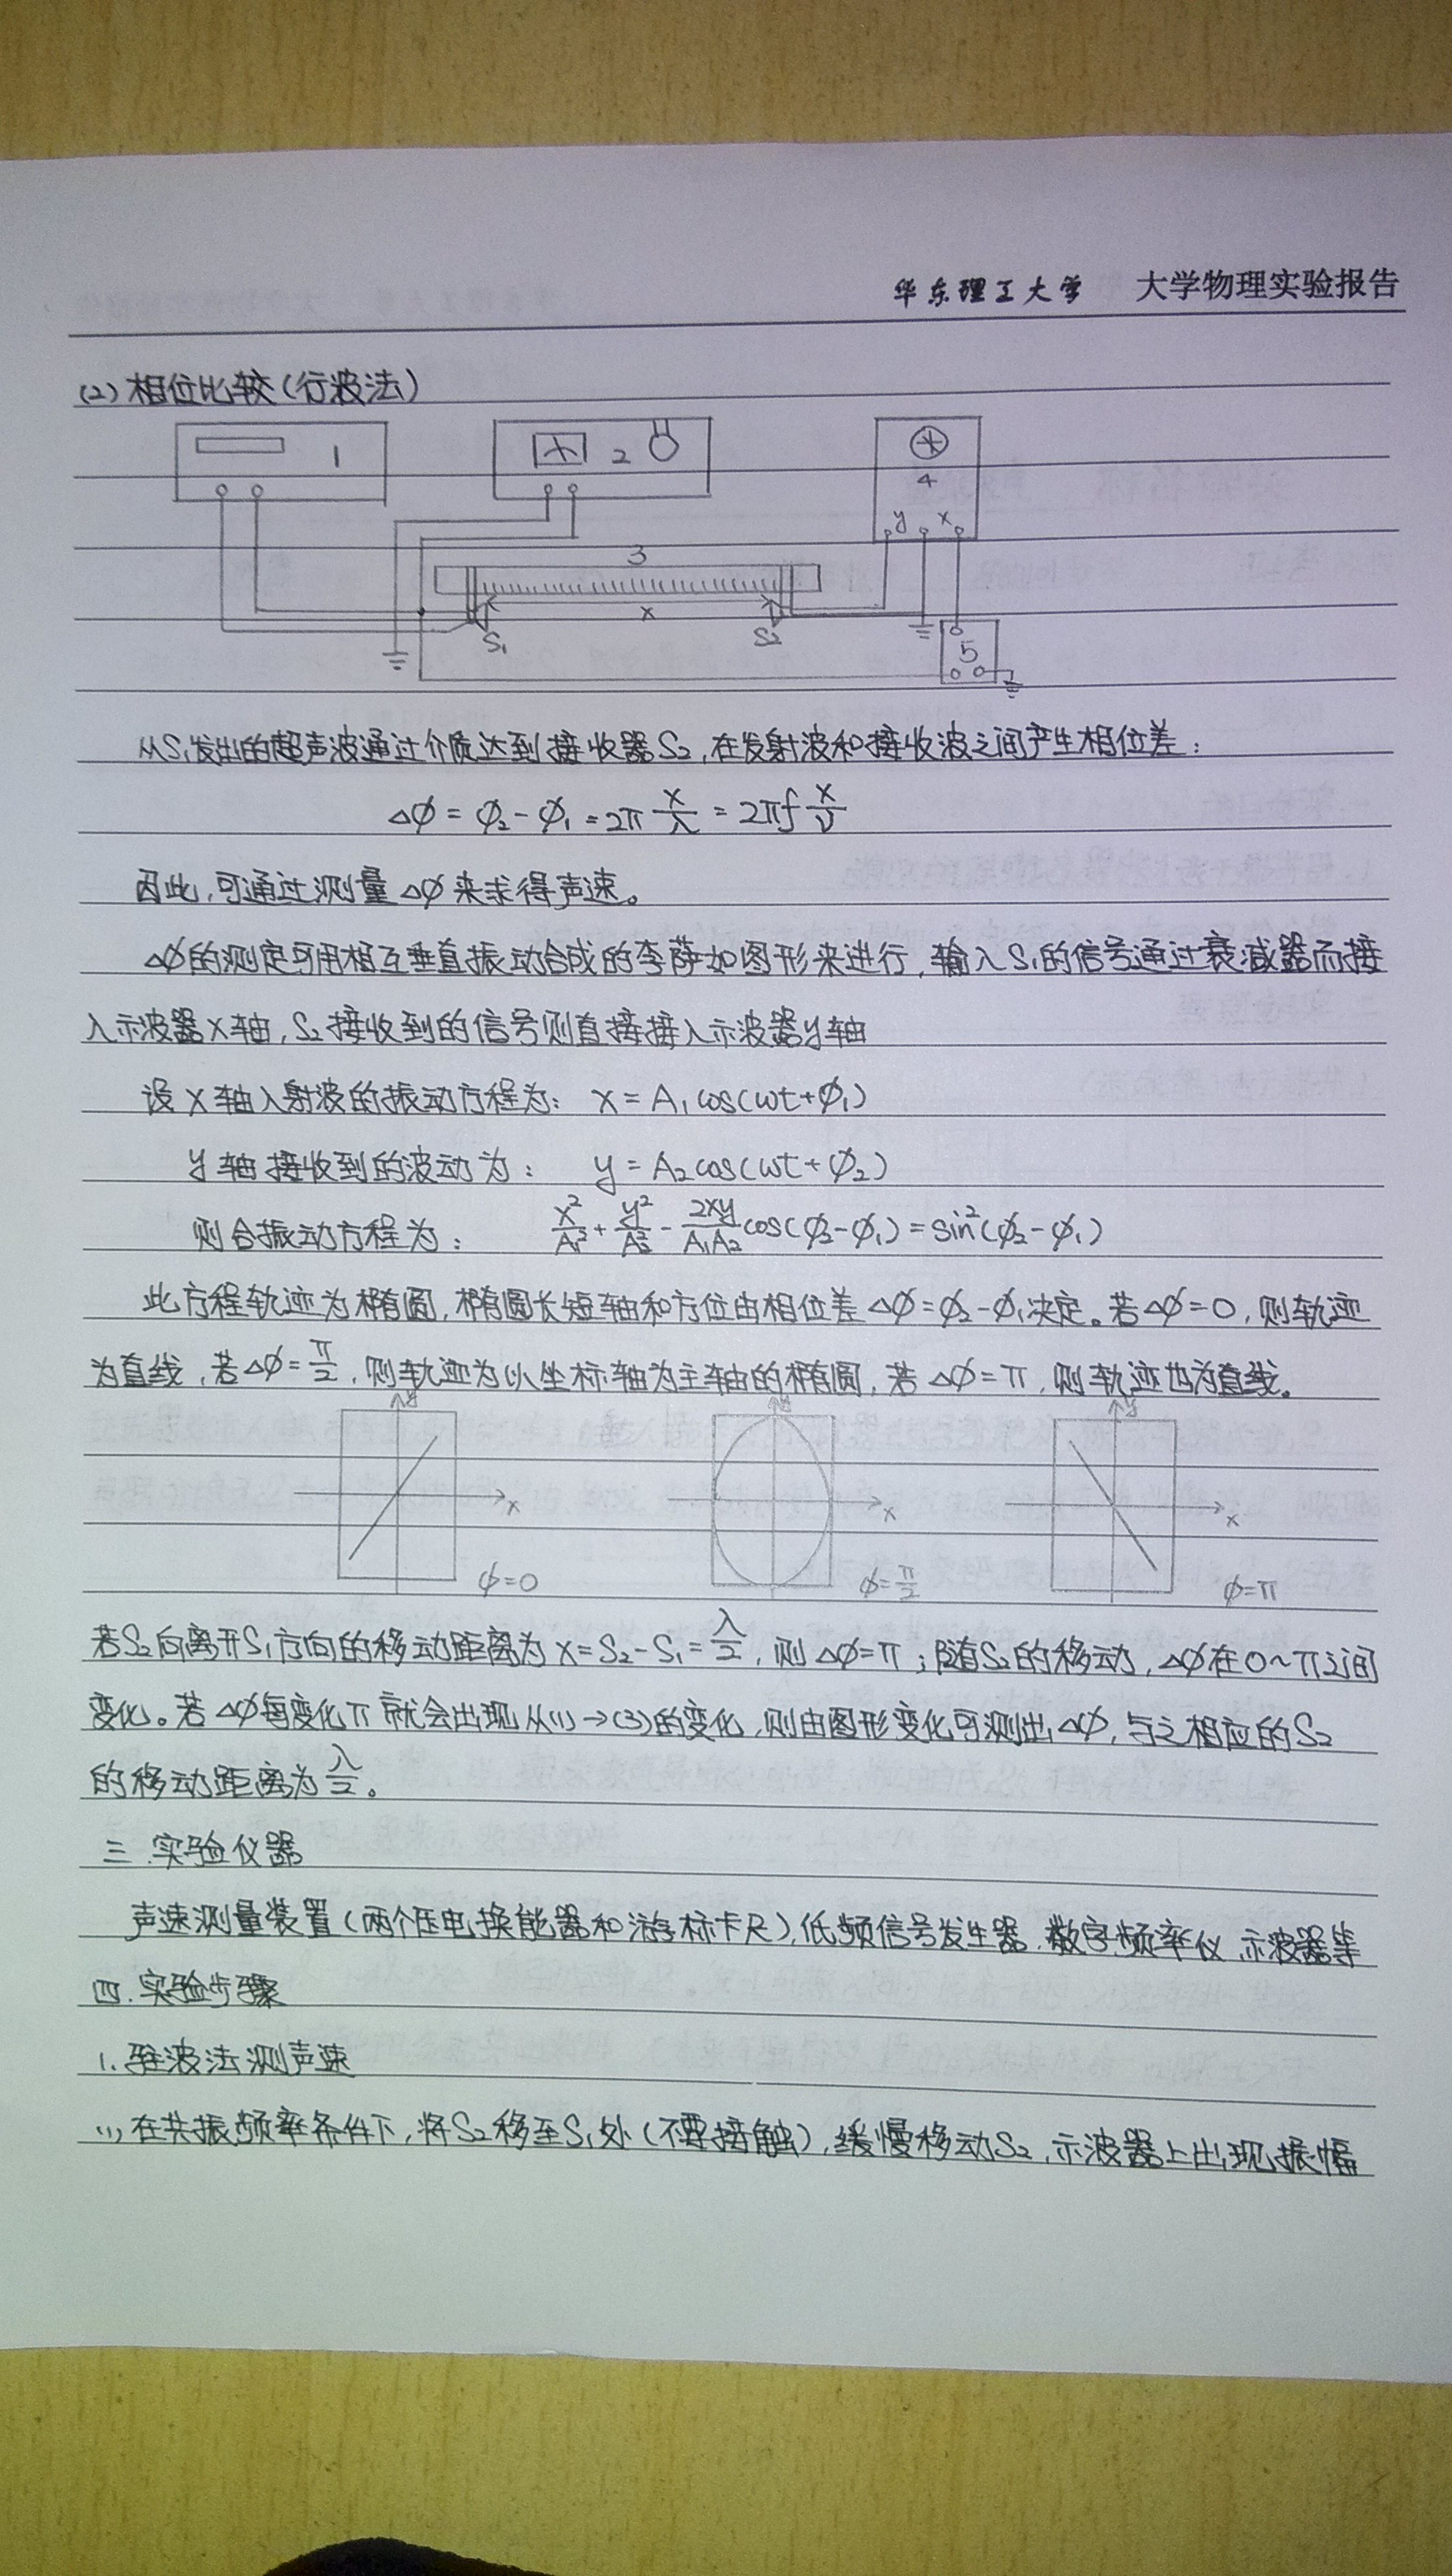 华东理工大学 大学物理实验报告
(2)相位比较(行波法)
1 2 4
y x
3
x
S₁ S₂ 5
从S₁发出的超声波通过介质达到接收器S₂,在发射波和接收波之间产生相位差:
Δφ = φ₂ - φ₁ = 2π x/λ = 2πf x/v
因此,可通过测量Δφ来求得声速。
Δφ的测定可用相互垂直振动合成的李萨如图形来进行,输入S₁的信号通过衰减器而接
入示波器X轴,S₂接收到的信号则直接接入示波器y轴
设X轴入射波的振动方程为: x = A₁cos(ωt+φ₁)
y轴接收到的波动为: y = A₂cos(ωt+φ₂)
则合振动方程为: x²/A₁² + y²/A₂² - 2xy/A₁A₂ cos(φ₂-φ₁) = sin²(φ₂-φ₁)
此方程轨迹为椭圆,椭圆长短轴和方位由相位差Δφ=φ₂-φ₁决定。若Δφ=0,则轨迹
为直线,若Δφ=π/2,则轨迹为以坐标轴为主轴的椭圆,若Δφ=π,则轨迹也为直线。
y y y
x x x
φ=0 φ=π/2 φ=π
若S₂向离开S₁方向的移动距离为x=S₂-S₁=λ/2,则Δφ=π;随着S₂的移动,Δφ在0~π之间
变化。若Δφ每变化π就会出现从(1)→(3)的变化,则由图形变化可测出Δφ,与之相应的S₂
的移动距离为λ/2。
三.实验仪器
声速测量装置(两个压电换能器和游标卡尺),低频信号发生器.数字频率仪.示波器等
四.实验步骤
1.驻波法测声速
(1)在共振频率条件下,将S₂移至S₁处(不要接触),缓慢移动S₂,示波器上出现振幅